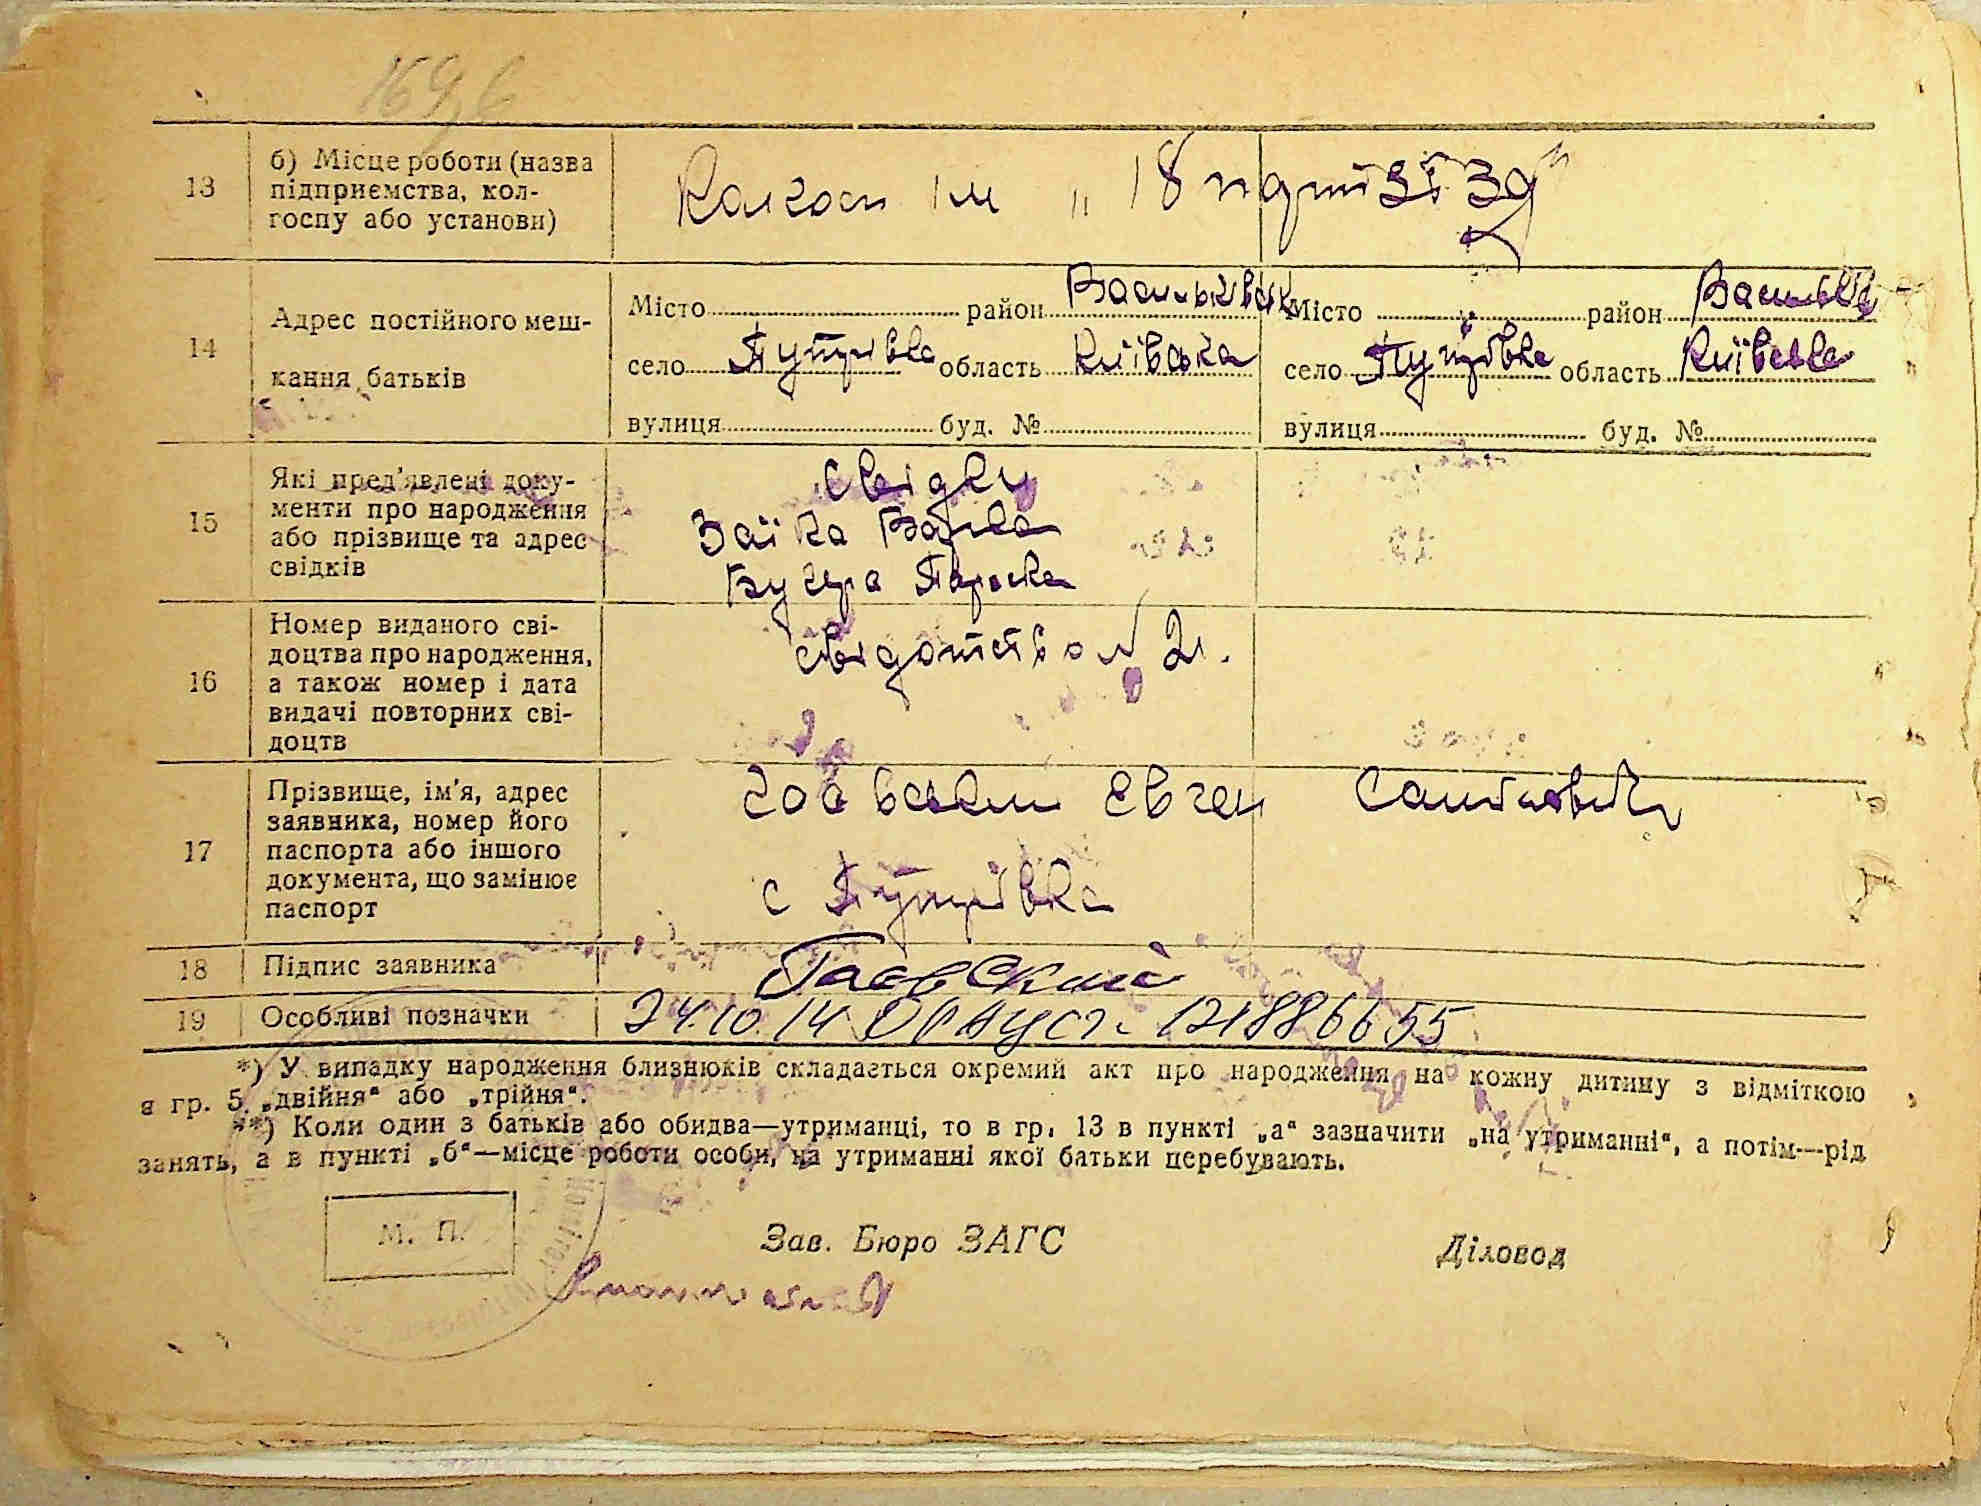 169,6
13
б) Місце роботи (назва
підприємства, кол-
госпу або установи)
Колгосп ім „18 парт
14
Адрес постійного меш-
кання батьків
Місто район Васильківськ
село Путрівка область Київська
вулиця буд. №
Місто район Васильків
село Путрівка область Київська
вулиця буд. №
15
Які пред'явлені доку-
менти про народження
або прізвище та адрес
свідків
Свідки
Заїка Варка
Бугера Параска
16
Номер виданого сві-
доцтва про народження,
а також номер і дата
видачі повторних сві-
доцтв
свідотство №
17
Прізвище, ім'я, адрес
заявника, номер його
паспорта або іншого
документа, що замінює
паспорт
Євген
с Путрівка
18
Підпис заявника
Гаевский
19
Особливі позначки
24.10.14
*) У випадку народження близнюків складається окремий акт про народження на кожну дитину з відміткою
в гр. 5 „двійня“ або „трійня“.
**) Коли один з батьків або обидва—утриманці, то в гр. 13 в пункті „а“ зазначити „на утриманні“, а потім—рід
занять, а в пункті „б“—місце роботи особи, на утриманні якої батьки перебувають.
М. П.
Зав. Бюро ЗАГС
Діловод